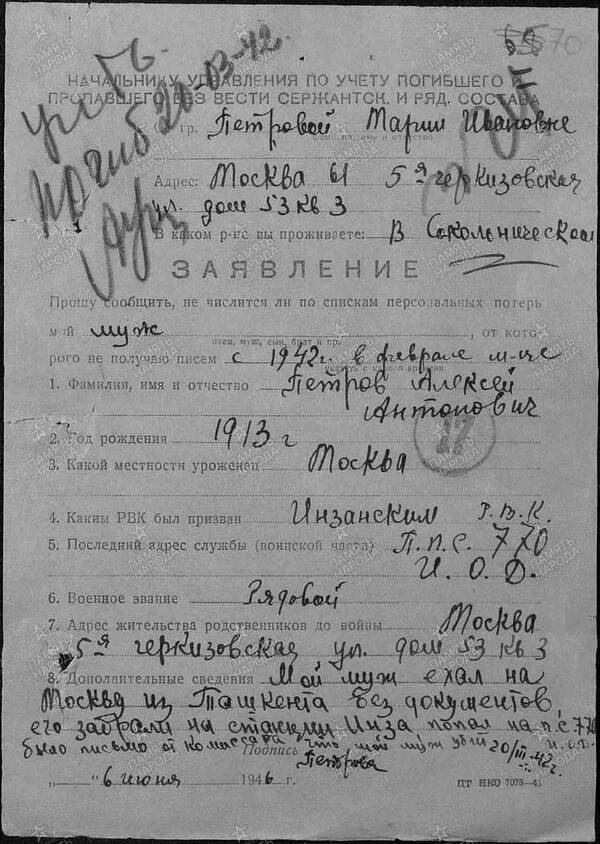 570
НАЧАЛЬНИКУ УПРАВЛЕНИЯ ПО УЧЕТУ ПОГИБШЕГО И
ПРОПАВШЕГО БЕЗ ВЕСТИ СЕРЖАНТСК. И РЯД. СОСТАВА
погиб 20-03-42
гр. Петровой Марии Ивановне
фамилия, имя и отчество
Адрес: Москва 61 5я черкизовская
ул. дом 53 кв 3
В каком р-не вы проживаете: В Сокольническом
ЗАЯВЛЕНИЕ
Прошу сообщить, не числится ли по спискам персональных потерь
мой муж, от кото-
отец, муж, сын, брат и пр.
рого не получаю писем с 1942 г. в феврале м-це
указать с какого времени
1. Фамилия, имя и отчество Петров Алексей
Антонович
17
2. Год рождения 1913 г
3. Какой местности уроженец Москва
4. Каким РВК был призван Инзанским Р.В.К.
5. Последний адрес службы (воинской части) П.п.С. 770
И.О.D.
6. Военное звание Рядовой
7. Адрес жительства родственников до войны Москва
5я черкизовская ул. дом 53 кв 3
8. Дополнительные сведения Мой муж ехал на
Москву из Ташкента без документов,
его забрали на станции Инза попал на п.с 770
было письмо от комиссара что мой муж убит 20/III-42 г.
Подпись Петрова
„ “ 6 июня 1946 г.
ЦТ НКО 7078-45